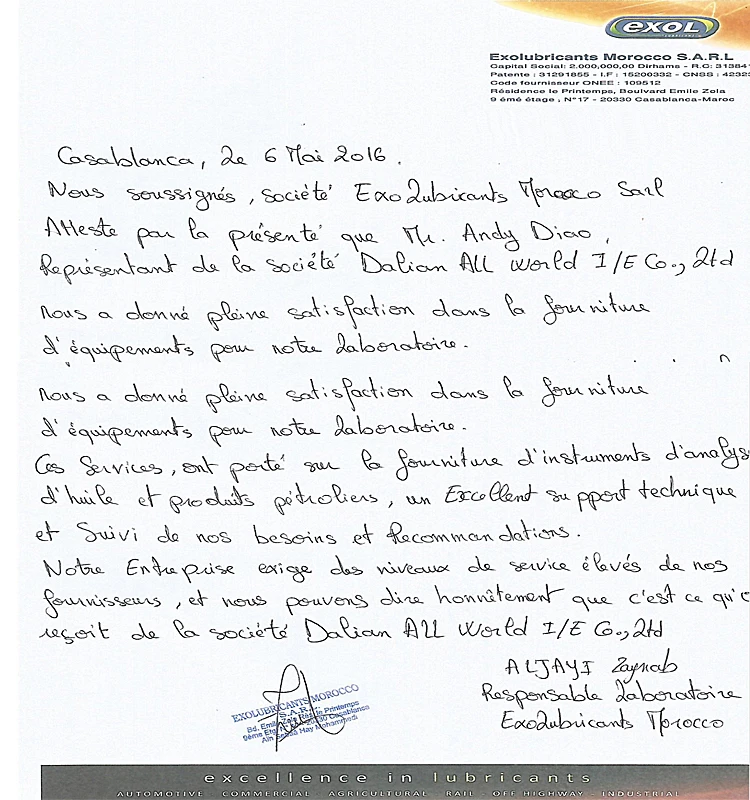 exol
LUBRICANTS
Exolubricants Morocco S.A.R.L
Capital Social: 2.000,000,00 Dirhams - R.C: 31384
Patente : 31291855 - I.F : 15200332 - CNSS : 4232
Code fournisseur ONEE : 109512
Résidence le Printemps, Boulvard Emile Zola
9 émé étage , N°17 - 20330 Casablanca-Maroc
Casablanca, Le 6 Mai 2016.
Nous soussignés, société Exolubricants Morocco Sarl
Atteste par la présenté que Mr. Andy Diao,
Représentant de la société Dalian All World I/E Co., Ltd
nous a donné pleine satisfaction dans la fourniture
d'équipements pour notre Laboratoire.
nous a donné pleine satisfaction dans la fourniture
d'équipements pour notre Laboratoire.
Ces Services, ont porté sur la fourniture d'instruments d'analys
d'huile et produits pétroliers, un Excellent support technique
et Suivi de nos besoins et Recommandations.
Notre Entreprise exige des niveaux de service élevés de nos
fournisseurs, et nous pouvons dire honnêtement que c'est ce qu'
reçoit de la société Dalian All World I/E Co., Ltd
ALJAYI Zaynab
Responsable Laboratoire
Exolubricants Morocco
EXOLUBRICANTS MOROCCO
S.A.R.L
Bd. Emile Zola Rés le Printemps
9éme Etg N°17 - 20330 Casablanca
Aïn Hay Mohammedi
excellence in lubricants
AUTOMOTIVE COMMERCIAL AGRICULTURAL RAIL - OFF HIGHWAY - INDUSTRIAL